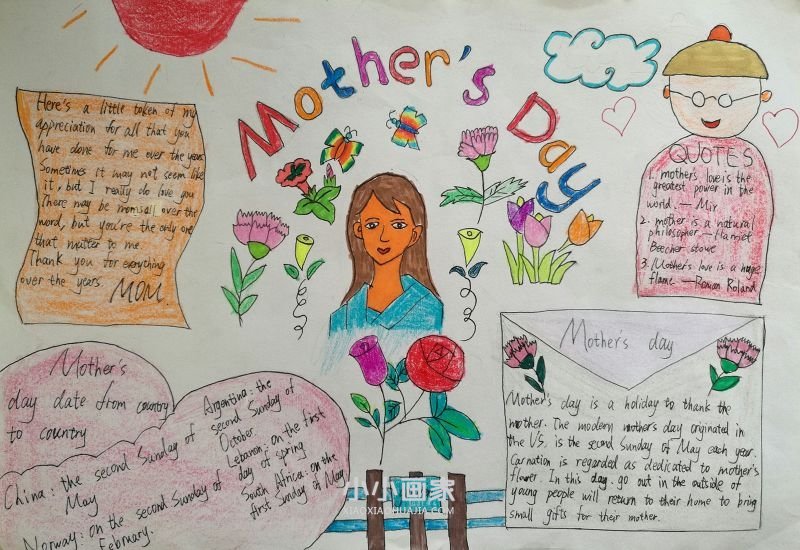 Mother's Day
Here's a little token of my
appreciation for all that you
have done for me over the years
Sometimes it may not seem like
it, but I really do love you
There may be moms all over the
word, but you're the only one
that matter to me
Thank you for everything
over the years.
MOM
QUOTES
1. mother's love is the
greatest power in the
world. — Mir
2. mother is a natural
philosopher — Harriet
Beecher stowe
3. Mother's love is a huge
flame — Roman Roland
Mother's
day date from country
to country
China: the second Sunday of
May
Norway: on the second Sunday of
February.
Argentina: the
second Sunday of
October
Lebanon: on the first
day of spring
South Africa: on the
first Sunday of May
Mother's day
Mother's day is a holiday to thank the
mother. The modern mother's day originated in
the U.S. is the second Sunday of May each year.
Carnation is regarded as dedicated to mother's
flower. In this day. go out in the outside of
young people will return to their home to bring
small gifts for their mother.
小小画家
XIAOXIAOHUAJIA.COM